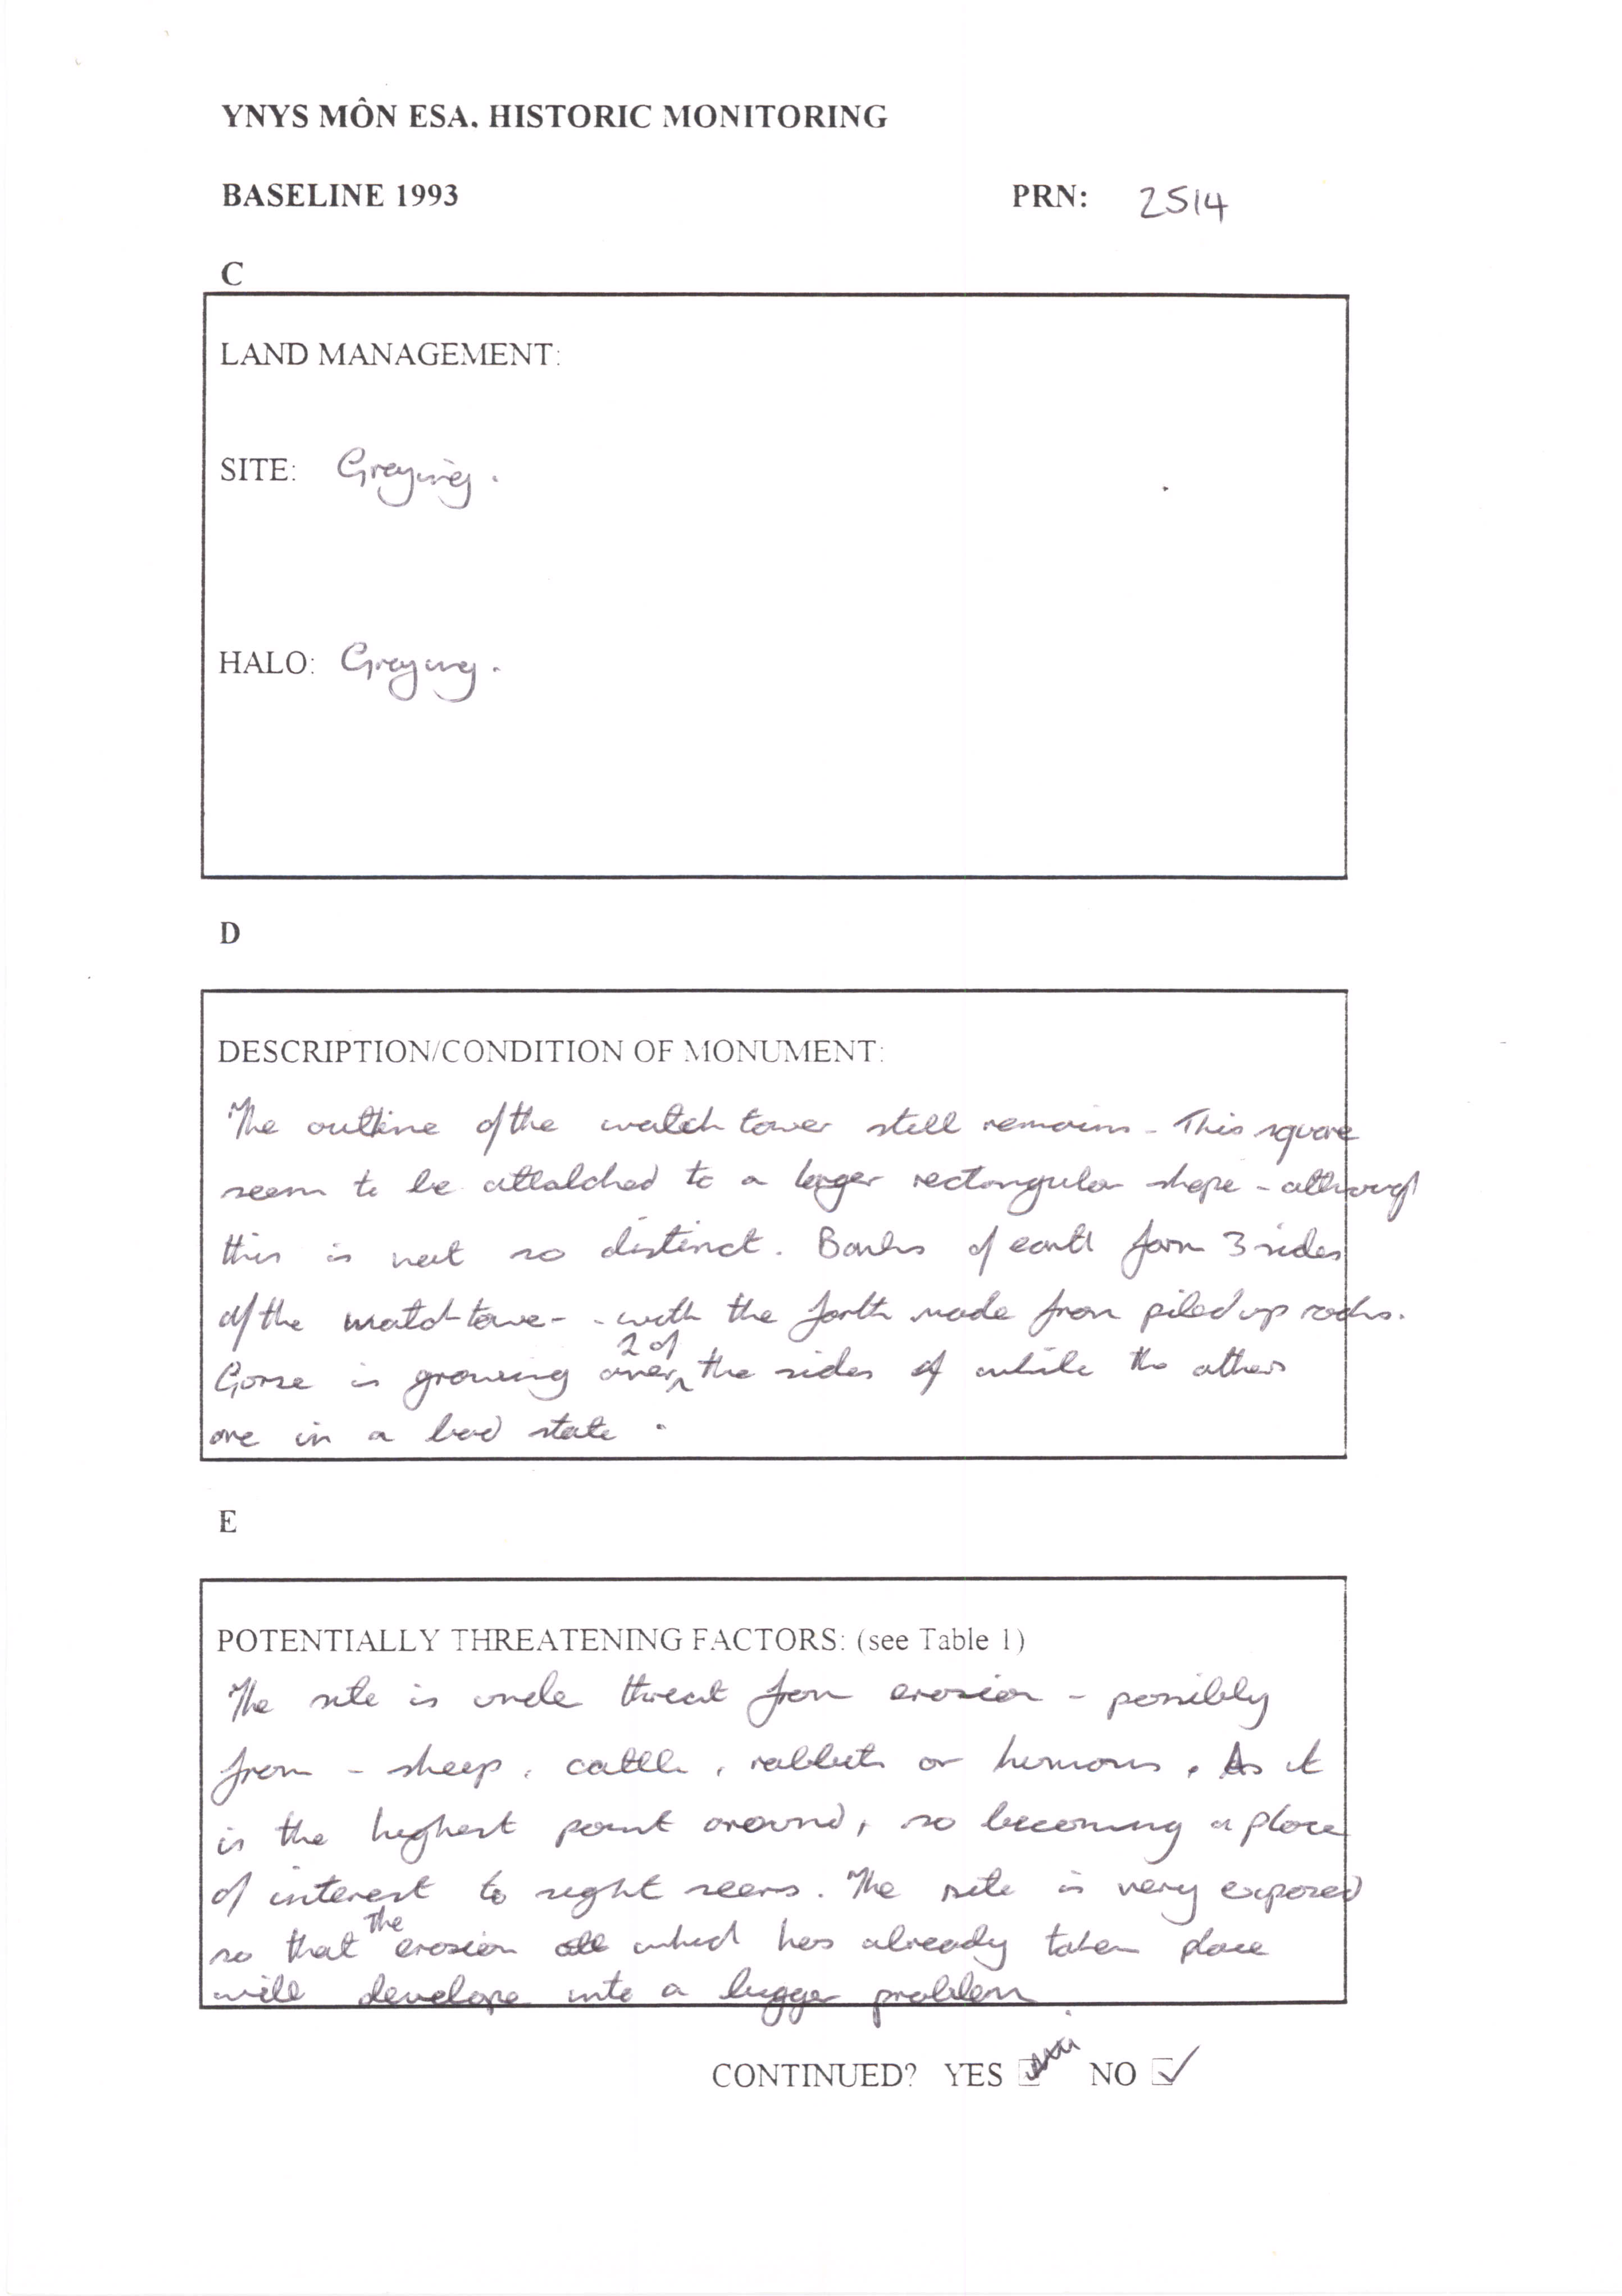 YNYS MÔN ESA. HISTORIC MONITORING
BASELINE 1993 PRN: 2514
C
LAND MANAGEMENT:
SITE: Grazing.
HALO: Grazing.
D
DESCRIPTION/CONDITION OF MONUMENT:
The outline of the watch tower still remains - This square
seem to be attalched to a larger rectangular shape - although
this is not so distinct. Banks of earth form 3 sides
of the watch tower - with the forth made from piled up rocks.
Gorse is growing over 2 of the sides of while the others
are in a bad state.
E
POTENTIALLY THREATENING FACTORS: (see Table 1)
The site is unde threat from erosion - possibly
from - sheep, cattle, rabbits or humans. As it
is the highest point around, so becoming a place
of interest to sight seers. The site is very exposed
so that the erosion which has already taken place
will develope into a bigger problem
CONTINUED? YES NO ✓